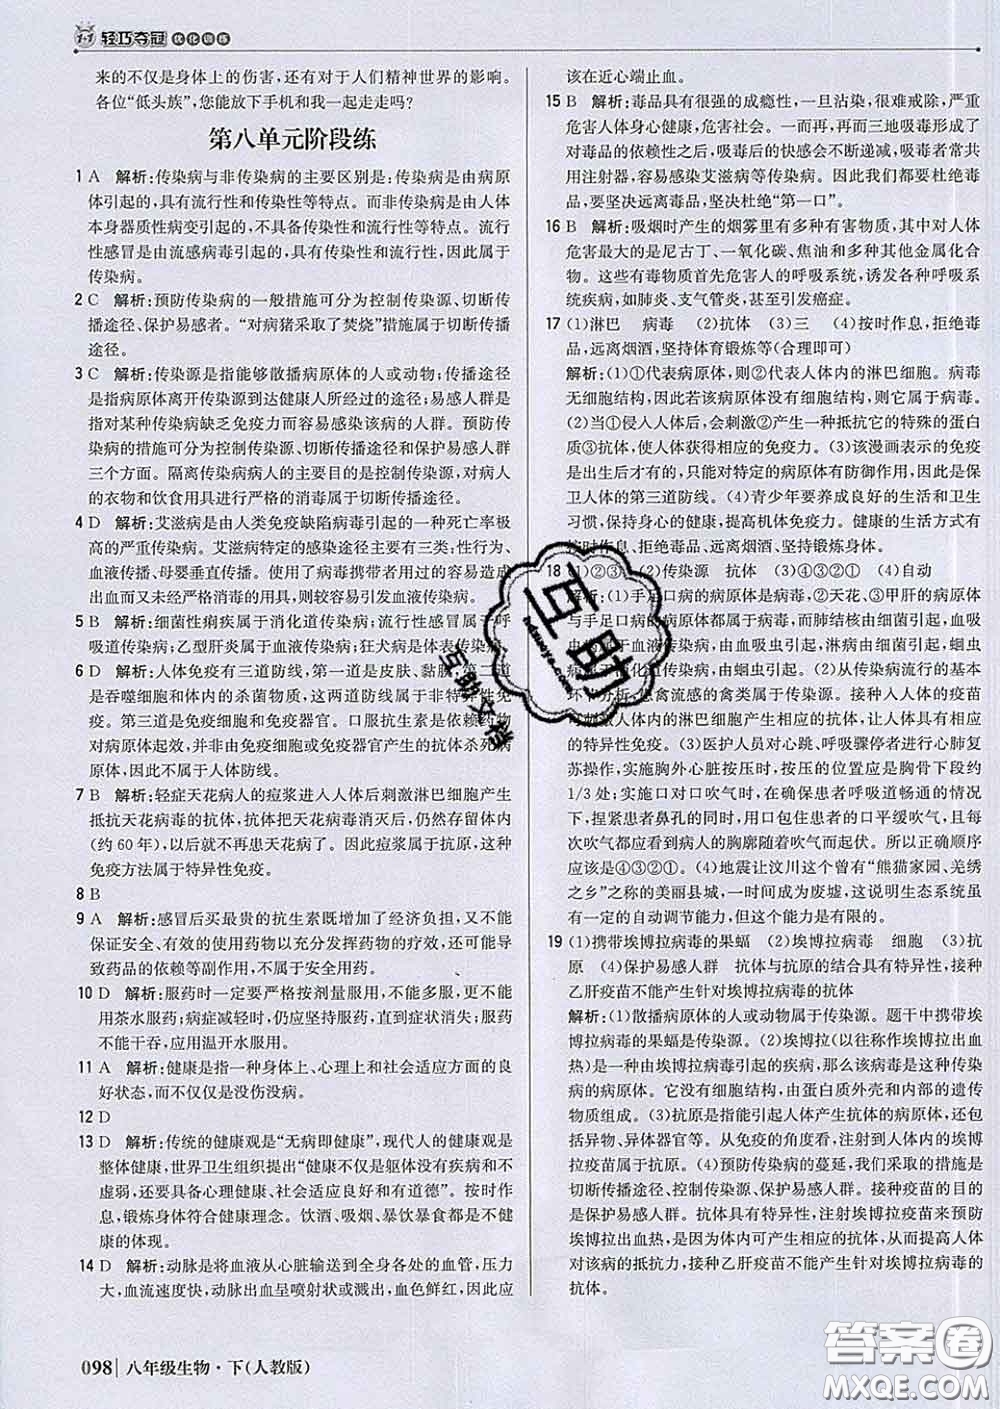 1+1 轻巧夺冠 优化训练
来的不仅是身体上的伤害,还有对于人们精神世界的影响。
各位“低头族”,您能放下手机和我一起走走吗?
第八单元阶段练
1 A 解析:传染病与非传染病的主要区别是:传染病是由病原
体引起的,具有流行性和传染性等特点。而非传染病是由人体
本身器质性病变引起的,不具备传染性和流行性等特点。流行
性感冒是由流感病毒引起的,具有传染性和流行性,因此属于
传染病。
2 C 解析:预防传染病的一般措施可分为控制传染源、切断传
播途径、保护易感者。“对病猪采取了焚烧”措施属于切断传播
途径。
3 C 解析:传染源是指能够散播病原体的人或动物;传播途径
是指病原体离开传染源到达健康人所经过的途径;易感人群是
指对某种传染病缺乏免疫力而容易感染该病的人群。预防传
染病的措施可分为控制传染源、切断传播途径和保护易感人群
三个方面。隔离传染病病人的主要目的是控制传染源,对病人
的衣物和饮食用具进行严格的消毒属于切断传播途径。
4 D 解析:艾滋病是由人类免疫缺陷病毒引起的一种死亡率极
高的严重传染病。艾滋病特定的感染途径主要有三类:性行为、
血液传播、母婴垂直传播。使用了病毒携带者用过的容易造成
出血而又未经严格消毒的用具,则较容易引发血液传染病。
5 B 解析:细菌性痢疾属于消化道传染病;流行性感冒属于呼
吸道传染病;乙型肝炎属于血液传染病;狂犬病是体表传染病。
6 D 解析:人体免疫有三道防线,第一道是皮肤、黏膜,第二道
是吞噬细胞和体内的杀菌物质,这两道防线属于非特异性免
疫。第三道是免疫细胞和免疫器官。口服抗生素是依赖药物
作用,并非由免疫细胞或免疫器官产生的抗体杀死病
原体,因此不属于人体防线。
7 B 解析:轻症天花病人的痘浆进入人体后刺激淋巴细胞产生
抵抗天花病毒的抗体,抗体把天花病毒消灭后,仍然存留体内
(约 60 年),以后就不再患天花病了。因此痘浆属于抗原,这种
免疫方法属于特异性免疫。
8 B
9 A 解析:感冒后买最贵的抗生素既增加了经济负担,又不能
保证安全、有效的使用药物以充分发挥药物的疗效,还可能导
致药品的依赖等副作用,不属于安全用药。
10 D 解析:服药时一定要严格按剂量服用,不能多服,更不能
用茶水服药;病症减轻时,仍应坚持服药,直到症状消失;服药
不能干吞,应用温开水服用。
11 A 解析:健康是指一种身体上、心理上和社会适应方面的良
好状态,而不仅仅是没伤没病。
12 D
13 D 解析:传统的健康观是“无病即健康”,现代人的健康观是
整体健康,世界卫生组织提出“健康不仅是躯体没有疾病和不
虚弱,还要具备心理健康、社会适应良好和有道德”。按时作
息,锻炼身体符合健康理念。饮酒、吸烟、暴饮暴食都是不健
康的体现。
14 D 解析:动脉是将血液从心脏输送到全身各处的血管,压力
大,血流速度快,动脉出血呈喷射状或溅出,血色鲜红,因此应
该在近心端止血。
15 B 解析:毒品具有很强的成瘾性,一旦沾染,很难戒除,严重
危害人体身心健康,危害社会。一而再,再而三地吸毒形成了
对毒品的依赖性之后,吸毒后的快感会不断递减,吸毒者常共
用注射器,容易感染艾滋病等传染病。因此我们都要杜绝毒
品,要坚决远离毒品,坚决杜绝“第一口”。
16 B 解析:吸烟时产生的烟雾里有多种有害物质,其中对人体
危害最大的是尼古丁、一氧化碳、焦油和多种其他金属化合
物。这些有毒物质首先危害人的呼吸系统,诱发各种呼吸系
统疾病,如肺炎、支气管炎,甚至引发癌症。
17 (1)淋巴 病毒 (2)抗体 (3)三 (4)按时作息,拒绝毒
品,远离烟酒,坚持体育锻炼等(合理即可)
解析:(1)①代表病原体,则②代表人体内的淋巴细胞。病毒
无细胞结构,因此若该病原体没有细胞结构,则其属于病毒。
(2)当①侵入人体后,会刺激②产生一种抵抗它的特殊的蛋白
质③抗体,使人体获得相应的免疫力。(3)该漫画表示的免疫
是出生后才有的,只能对特定的病原体有防御作用,因此是保
卫人体的第三道防线。(4)青少年要养成良好的生活和卫生
习惯,保持身心的健康,提高机体免疫力。健康的生活方式有
按时作息、拒绝毒品、远离烟酒、坚持锻炼身体。
18 (1)②③ (2)传染源 抗体 (3)④③②① (4)自动
解析:(1)手足口病的病原体是病毒,②天花、③甲肝的病原体
与手足口病的病原体都属于病毒,而肺结核由细菌引起,
由血吸虫引起,
病由蛔虫引起。(2)从传染病流行的基本
环节分析,患禽流感的禽类属于传染源。接种入人体的疫苗
可刺激人体内的淋巴细胞产生相应的抗体,让人体具有相应
的特异性免疫。(3)医护人员对心跳、呼吸骤停者进行心肺复
苏操作,实施胸外心脏按压时,按压的位置应是胸骨下段约
1/3 处;实施口对口吹气时,在确保患者呼吸道畅通的情况
下,捏紧患者鼻孔的同时,用口包住患者的口平缓吹气,且每
次吹气都应看到病人的胸廓随着吹气而起伏。所以正确顺序
应该是④③②①。(4)地震让汶川这个曾有“熊猫家园、羌绣
之乡”之称的美丽县城,一度成为废墟,这说明生态系统虽
有一定的自动调节能力,但这个能力是有限的。
19 (1)携带埃博拉病毒的果蝠 (2)埃博拉病毒 细胞 (3)抗
原 (4)保护易感人群 抗体与抗原的结合具有特异性,接种
乙肝疫苗不能产生针对埃博拉病毒的抗体
解析:(1)散播病原体的人或动物属于传染源。题干中携带埃
博拉病毒的果蝠是传染源。(2)埃博拉(以往称作埃博拉出血
热)是一种由埃博拉病毒引起的疾病,那么该病毒是这种传染
病的病原体。它没有细胞结构,由蛋白质外壳和内部的遗传
物质组成。(3)抗原是指能引起人体产生抗体的病原体,还包
括异物、异体器官等。从免疫的角度看,注射到人体内的埃博
拉病毒属于抗原。(4)预防传染病的蔓延,我们采取的措施是
切断传播途径、控制传染源、保护易感人群。接种疫苗的目的
是保护易感人群。抗体具有特异性,注射埃博拉疫苗来预防
埃博拉病毒,人体内可产生针对埃博拉的抗体,从而提高人体
对该病的抵抗力;接种乙肝疫苗不能产生针对埃博拉病毒的
抗体。
互助
互助文科
098 八年级生物·下(人教版)
答案圈
MXQE.COM